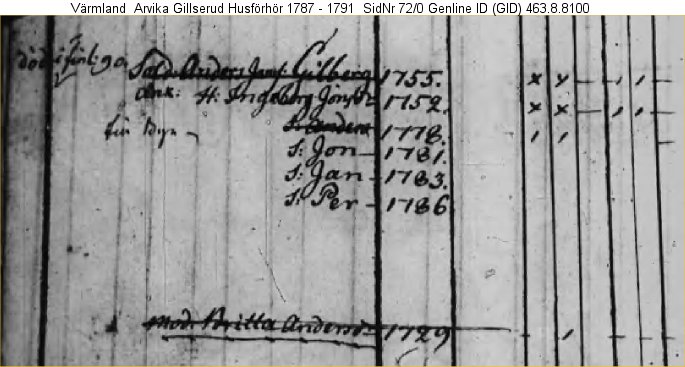 Värmland Arvika Gillserud Husförhör 1787 - 1791 SidNr 72/0 Genline ID (GID) 463.8.8100
död i finl: 90. Sold. Anders Jans: Gilberg - 1755.
Enk: H: Ingeborg Jonsdr 1752.
s: Anders 1778.
s: Jon - 1781.
s: Jan - 1783.
s: Per - 1786
mod: Britta Andersdr 1729